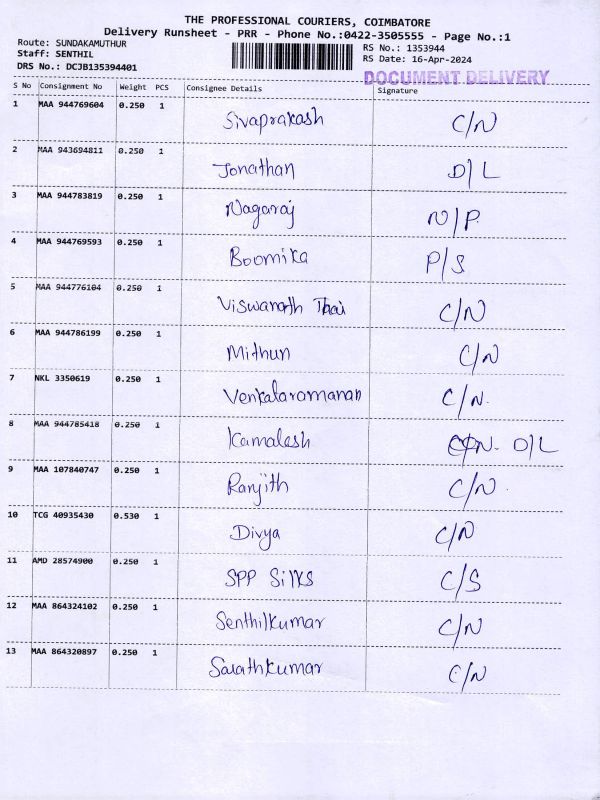 THE PROFESSIONAL COURIERS, COIMBATORE
Delivery Runsheet - PRR - Phone No.:0422-3505555 - Page No.:1
Route: SUNDAKAMUTHUR
Staff: SENTHIL
DRS No.: DCJB135394401
RS No.: 1353944
RS Date: 16-Apr-2024
DOCUMENT DELIVERY
S No Consignment No Weight PCS Consignee Details Signature
1 MAA 944769604 0.250 1 Sivaprakash C/N
2 MAA 943694811 0.250 1 Jonathan D/L
3 MAA 944783819 0.250 1 Nagaraj N/P
4 MAA 944769593 0.250 1 Boomika P/S
5 MAA 944776104 0.250 1 Viswanath Thai C/N
6 MAA 944786199 0.250 1 Mithun C/N
7 NKL 3350619 0.250 1 Venkataramanan C/N.
8 MAA 944785418 0.250 1 Kamalesh D/L
9 MAA 107840747 0.250 1 Ranjith C/N.
10 TCG 40935430 0.530 1 Divya C/N
11 AMD 28574900 0.250 1 SPP Silks C/S
12 MAA 864324102 0.250 1 Senthilkumar C/N
13 MAA 864320897 0.250 1 Sarathkumar C/N